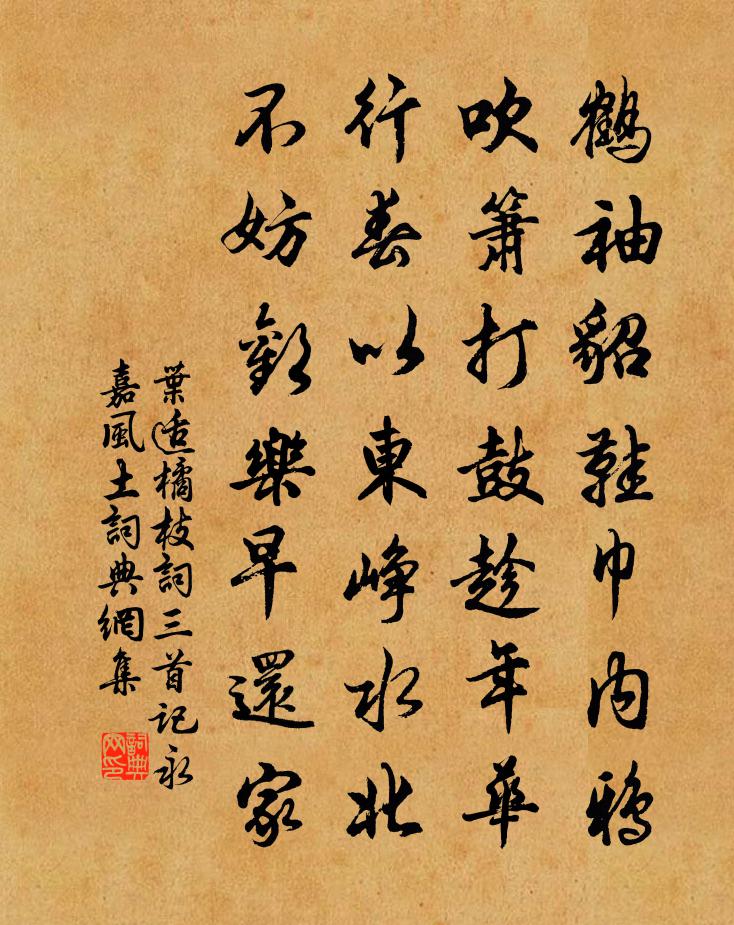 鶴袖貂鞋巾內鴉
吹簫打鼓趁年華
行春以東崢水北
不妨歡樂早還家
葉適橘枝詞三首記永
嘉風土詞典網集
詞典
网印